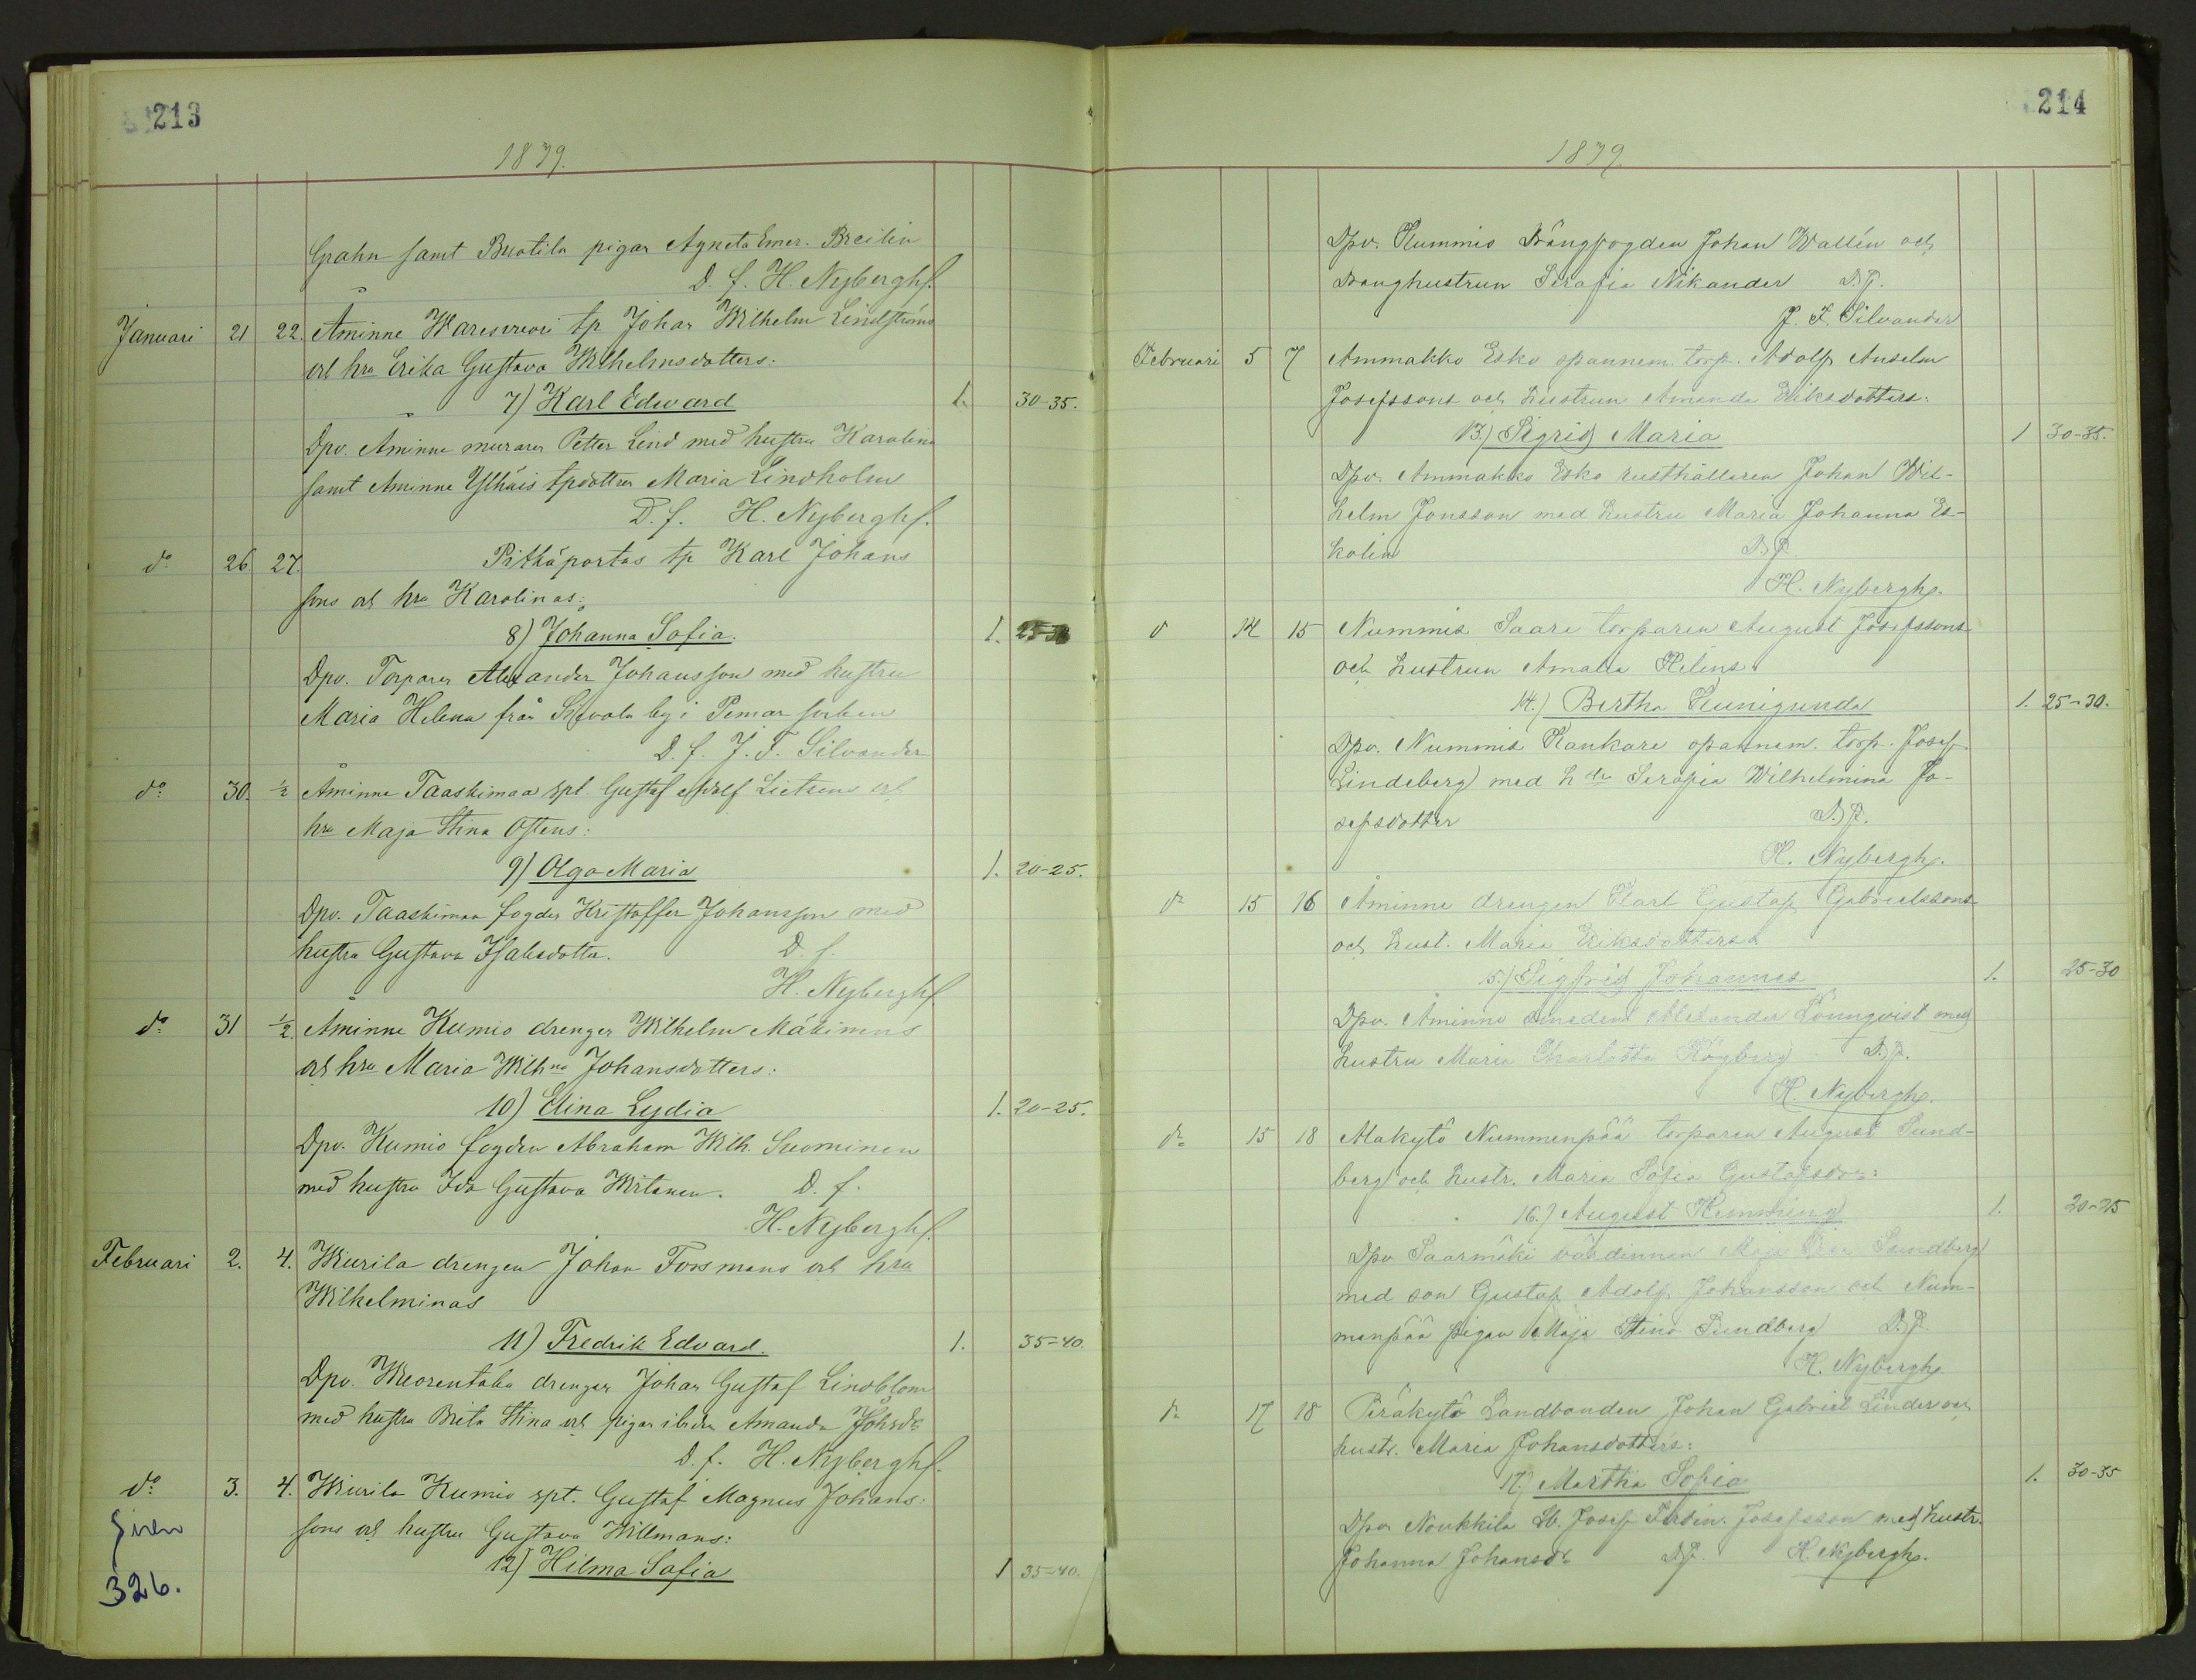 213
1879.
Grahn samt Buotila pigan Agneta Emer. Breilin
D. f. H. Nybergh.
Januari 21 22. Åminne tp Johan Wilhelm Lindströms
och hru Erika Gustava Wilhelmsdotters:
7) Karl Edward 1. 30-35.
Dpv. Åminne muraren Petter Lind med hustru Karolina
samt Åminne Ylhäis tpdottren Maria Lindholm
D. f. H. Nybergh.
do 26 27. Pitkäportas tp Karl Johans
sons och hru Karolinas:
8) Johanna Sofia. 1. 25-30
Dpv. Torparen Alexander Johansson med hustru
Maria Helena från by i Pemar socken
D. f. J. F. Silvander
do 30. 1/2 Åminne Taaskimaa spt. Gustaf Adolf och
hru Maja Stina Ostens:
9) Olga Maria 1. 20-25.
Dpv. Taaskimaa fogden Kristoffer Johansson med
hustru Gustava Isaksdotter. D. f.
H. Nybergh
do 31 1/2. Åminne Kumio drengen Wilhelm Mäkinens
och hru Maria Wilhna Johansdotters:
10) Elina Lydia 1. 20-25.
Dpv. Kumio fogden Abraham Wilh. Suominen
med hustru Ida Gustava Wirtanen. D. f.
H. Nybergh.
Februari 2. 4. Wiurila drengen Johan Forsmans och hru
Wilhelminas
11) Fredrik Edvard. 1. 35-40.
Dpv. Wuorentaka drengen Johan Gustaf Lindblom
med hustru Brita Stina och pigan ibidm Amanda Johsdr
D. f. H. Nybergh.
do 3. 4. Wiurila Kumio spt. Gustaf Magnus Johans-
sons och hustru Gustava Willmans:
12) Hilma Sofia 1 35-40.
326.
214
1879
Dpv. Kummio Drängfogden Johan Wallén och
Dränghustrun Serafia Nikander D.f.
J. F. Silvander
Februari 5 7 Ammakko Esko spannem. torp. Adolf Anselm
Josefssons och hustrun Amanda Eriksdotters:
13.) Sigrid Maria 1 30-35.
Dpv. Ammakko Esko rusthållaren Johan Wil-
helm Jonsson med hustru Maria Johanna Es-
kolin D.f.
H. Nybergh.
d 14 15 Nummis Saari torparen August Josefssons
och hustrun Amalia Helins
14.) Bertha Kunigunda 1. 25-30.
Dpv. Nummis Kankare spannem. torp. Josef
Lindeberg med hstr Serafia Wilhelmina Jo-
sefsdotter D.f.
H. Nybergh.
do 15 16 Åminne drengen Karl Gustaf Gabrielssons
och hust. Maria Eriksdotters
15.) Sigfrid Johannes 1. 25-30
Dpv. Åminne smeden Alexander Lönnqvist med
hustru Maria Charlotta Högberg D.f.
H. Nybergh.
do 15 18 Alakytö Nummenpää torparen August Sund-
berg och hustr. Maria Sofia Gustafsdrs:
16.) August Hemming 1. 20-25
Dpv Saarmäki värdinnan Maja Sundberg
med son Gustaf Adolf Johansson och Num-
menpää pigan Maja Stina Sundberg D.f.
H. Nybergh
do 17 18 Peräkytö Landbonden Johan Gabriel Linders och
hustr. Maria Johansdotters:
17.) Martha Sofia 1. 30-35
Dpv Noukkila Lb. Josef Ferdin. Josefsson med hustr.
Johanna Johansdr D.f. H. Nybergh.